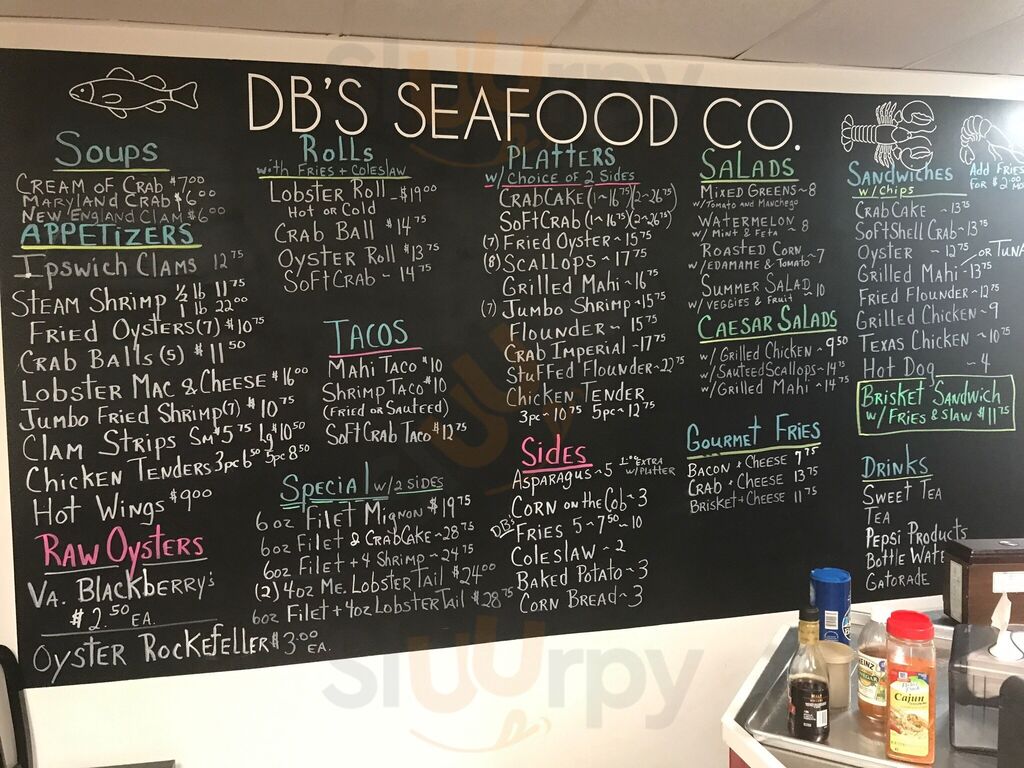 DB'S SEAFOOD CO.
SOUPS
CREAM OF CRAB $7.00
MARYLAND CRAB $6.00
NEW ENGLAND CLAM $6.00
APPETIZERS
IPSWICH CLAMS 12.75
STEAM SHRIMP ½ lb 11.75
1 lb 22.00
FRIED OYSTERS (7) $10.75
CRAB BALLS (5) $11.50
LOBSTER MAC & CHEESE $16.00
JUMBO FRIED SHRIMP (7) $10.75
CLAM STRIPS SM $5.75 Lg $10.50
CHICKEN TENDERS 3pc 6.50 5pc 8.50
HOT WINGS $9.00
RAW OYSTERS
VA. BLACKBERRY'S
$2.50 EA.
OYSTER ROCKEFELLER $3.00 EA.
ROLLS
with FRIES + COLESLAW
LOBSTER ROLL - $19.00
HOT OR COLD
CRAB BALL $14.75
OYSTER ROLL $13.75
SOFTCRAB - 14.75
TACOS
MAHI TACO $10
SHRIMP TACO $10
(FRIED OR SAUTEED)
SOFT CRAB TACO $12.75
SPECIAL w/ 2 SIDES
6oz FILET MIGNON $19.75
6oz FILET & CRABCAKE ~ 28.75
6oz FILET + 4 SHRIMP ~ 24.75
(2) 4oz ME. LOBSTER TAIL $24.00
6oz FILET + 4oz LOBSTER TAIL $28.75
PLATTERS
w/ CHOICE OF 2 SIDES
CRABCAKE (1~16.75) (2~26.75)
SOFTCRAB (1~16.75) (2~26.75)
(7) FRIED OYSTER ~ 15.75
(8) SCALLOPS ~ 17.75
GRILLED MAHI ~ 16.75
(7) JUMBO SHRIMP ~ 15.75
FLOUNDER ~ 15.75
CRAB IMPERIAL ~ 17.75
STUFFED FLOUNDER ~ 22.75
CHICKEN TENDER
3pc ~ 10.75 5pc ~ 12.75
SIDES
ASPARAGUS ~ 5 1.00 EXTRA w/PLATTER
CORN ON THE COB ~ 3
DB's FRIES 5 ~ 7.50 ~ 10
COLESLAW ~ 2
BAKED POTATO ~ 3
CORN BREAD ~ 3
SALADS
MIXED GREENS ~ 8
w/TOMATO AND MANCHEGO
WATERMELON ~ 8
w/ MINT & FETA
ROASTED CORN ~ 7
w/EDAMAME & TOMATO
SUMMER SALAD ~ 10
w/ VEGGIES & FRUIT
CAESAR SALADS
w/ GRILLED CHICKEN ~ 9.50
w/ SAUTEED SCALLOPS ~ 14.75
w/ GRILLED MAHI ~ 14.75
GOURMET FRIES
BACON + CHEESE 9.75
CRAB + CHEESE 13.75
BRISKET + CHEESE 11.75
SANDWICHES
w/ CHIPS
ADD FRIES
FOR $2.00
CRABCAKE ~ 13.75
SOFTSHELL CRAB ~ 13.75
OYSTER ~ 12.75
GRILLED MAHI / OR TUNA - 13.75
FRIED FLOUNDER ~ 12.75
GRILLED CHICKEN ~ 9
TEXAS CHICKEN ~ 10.75
HOT DOG ~ 4
BRISKET SANDWICH
w/ FRIES & SLAW $11.75
DRINKS
SWEET TEA
TEA
PEPSI PRODUCTS
BOTTLE WATE
GATORADE
HEINZ
Cajun
sluurpy
sluurpy